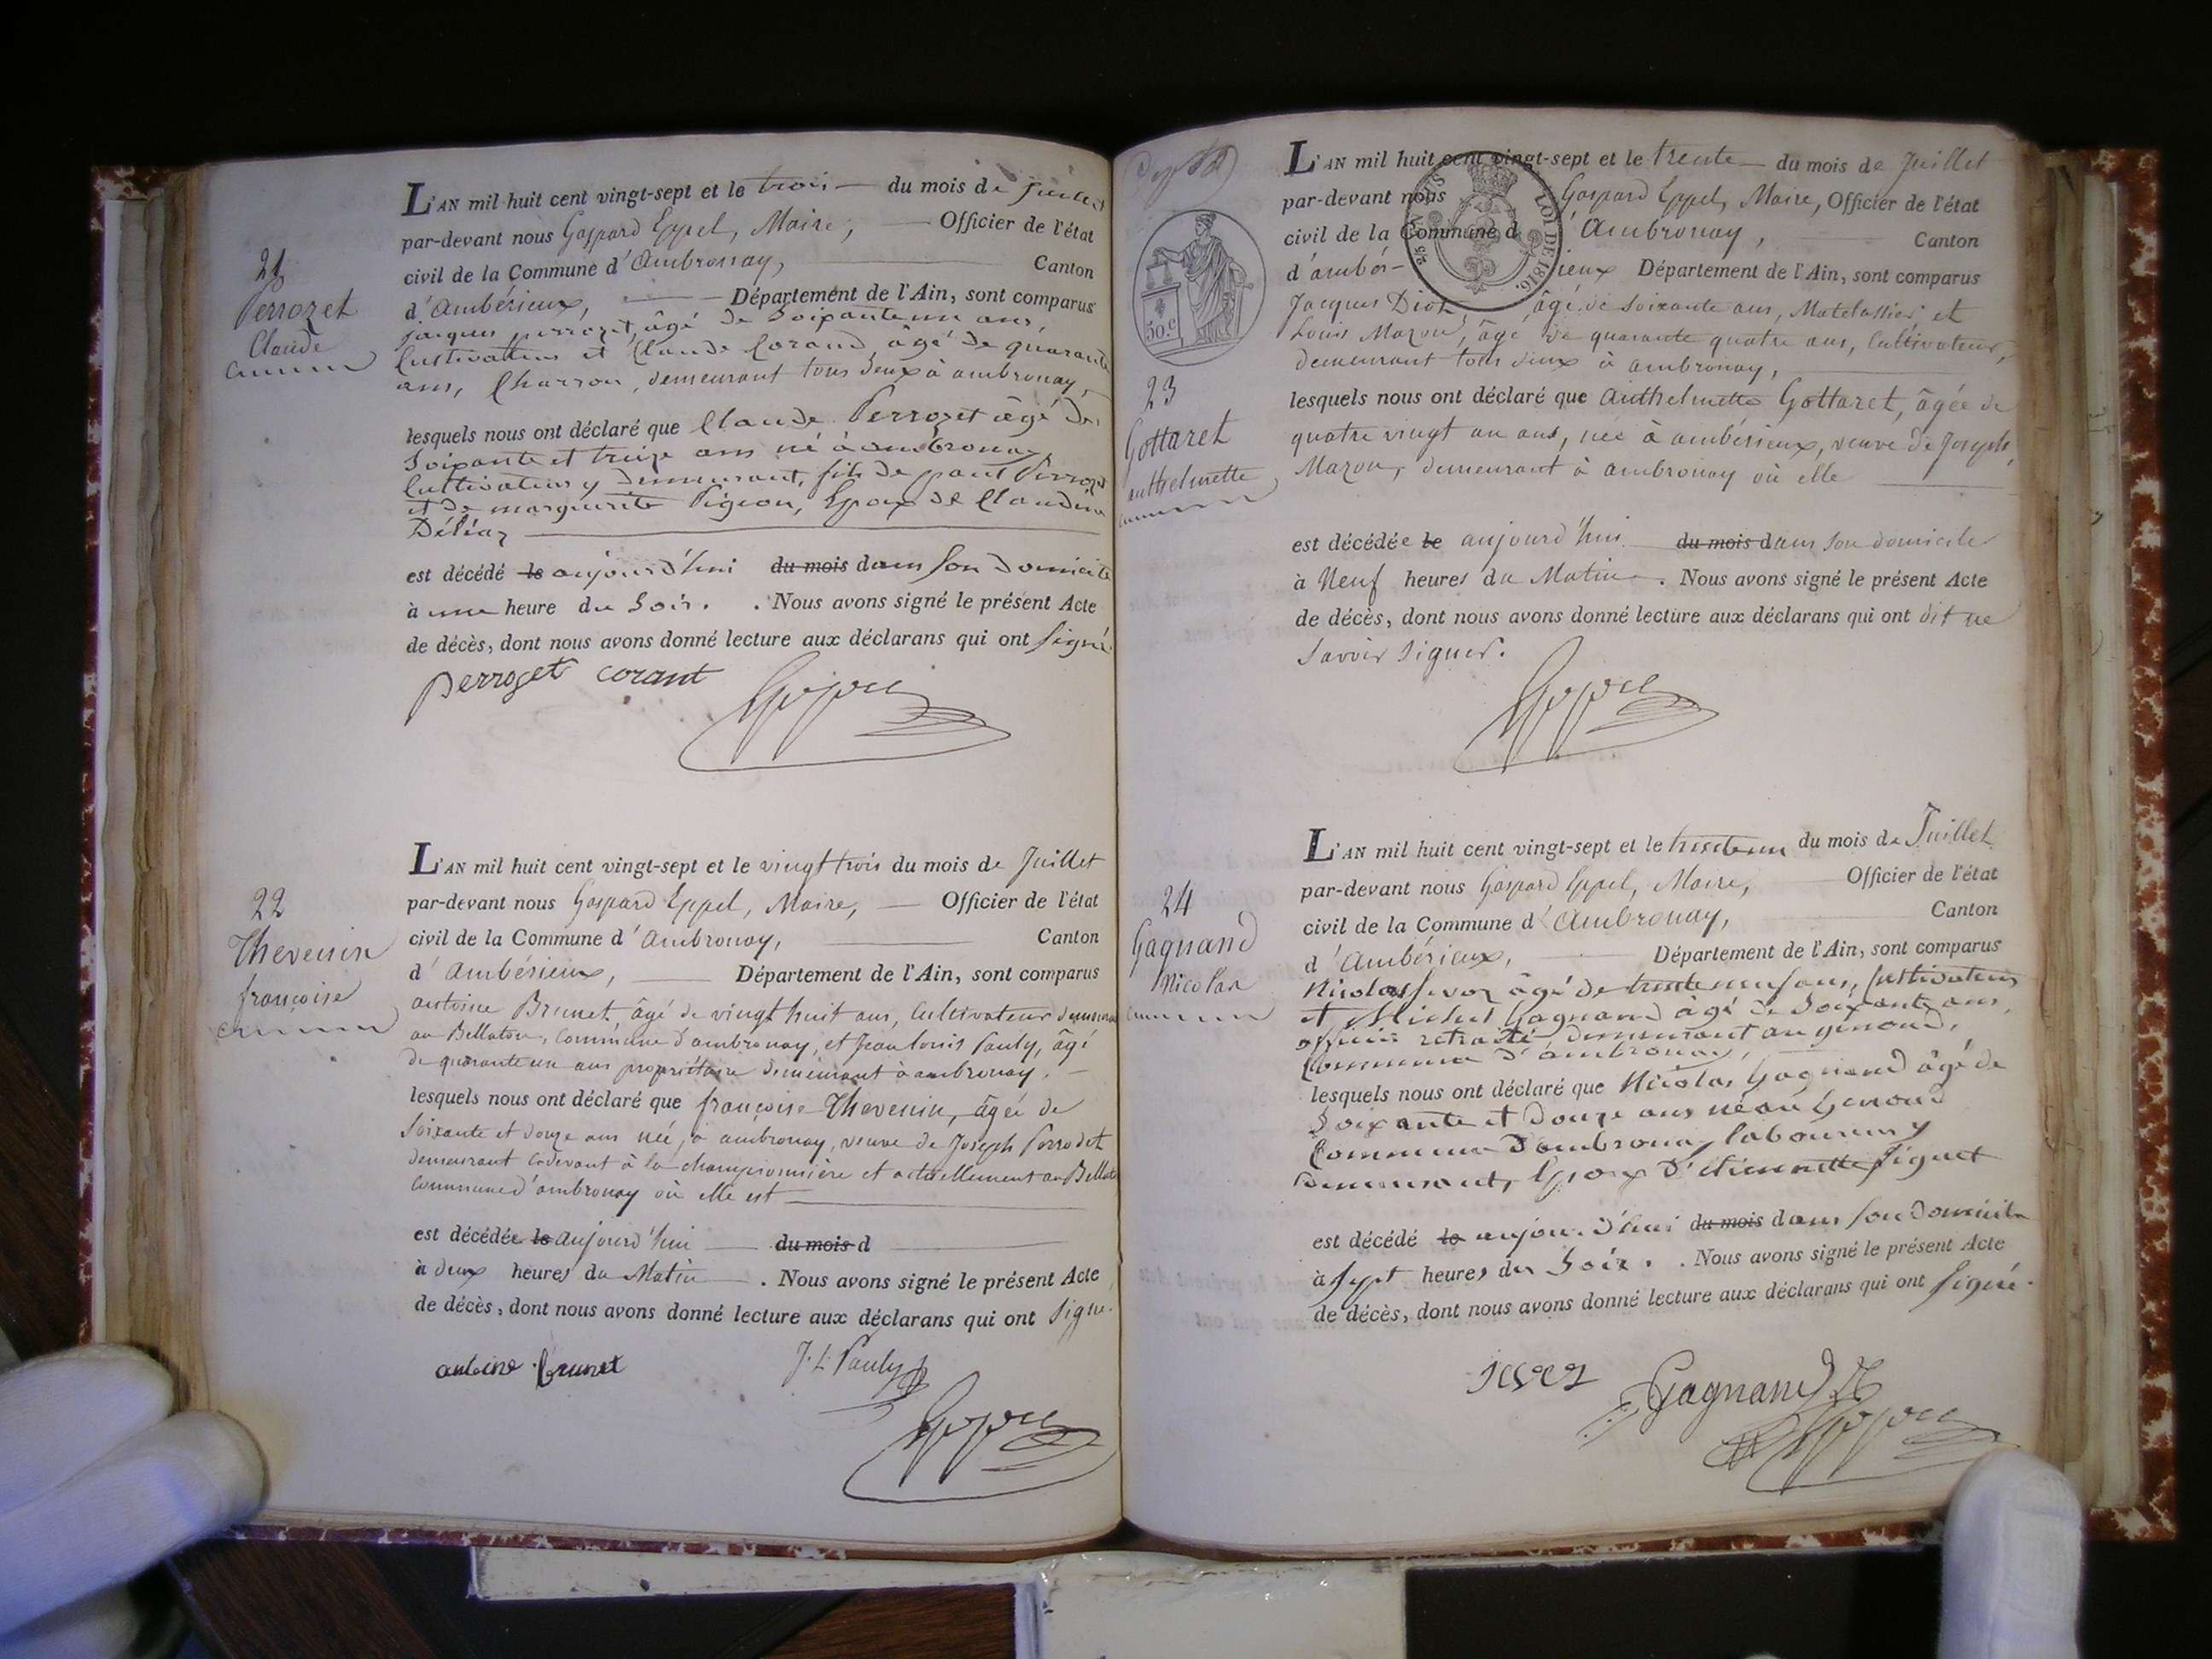 21
Perrozet
Claude
L'AN mil huit cent vingt-sept et le trois du mois de Juillet
par-devant nous Gaspard Eppel, Maire, Officier de l'état
civil de la Commune d'Ambronay, Canton
d'Ambérieux, Département de l'Ain, sont comparus
jacques perrozet, âgé de Soixante un ans,
Cultivateur et Claude Corand, âgé de quarante
ans, Charron, demeurant tous deux à ambronay,
lesquels nous ont déclaré que Claude Perrozet âgé de
Soixante et treize ans né à ambronay,
Cultivateur y demeurant, fils de paul Perrozet
et de marguerite Pigeon, Epoux de Claudine
Déléaz
est décédé le aujourd'hui du mois dans son Domicile
à une heure du Soir. . Nous avons signé le présent Acte
de décès, dont nous avons donné lecture aux déclarans qui ont Signé
perrozet corant
22
Thevenin
françoise
L'AN mil huit cent vingt-sept et le vingt trois du mois de Juillet
par-devant nous Gaspard Eppel, Maire, Officier de l'état
civil de la Commune d'Ambronay, Canton
d'Ambérieux, Département de l'Ain, sont comparus
antoine Brunet, âgé de vingt huit ans, Cultivateur demeurant
au Bellaton, Commune d'ambronay, et Jean louis Pauly, âgé
de quarante un ans propriétaire demeurant à ambronay.
lesquels nous ont déclaré que françoise Thevenin, âgée de
Soixante et douze ans née, à ambronay, veuve de Joseph Porrodet
demeurant cidevant à la championnière et actuellement au Bellaton
Commune d'ambronay où elle est
est décédée le aujourd'hui du mois d
à deux heures du Matin . Nous avons signé le présent Acte
de décès, dont nous avons donné lecture aux déclarans qui ont Signé.
antoine brunet J. L. Pauly
LOI DE 1816.
50.c
23
Gottaret
anthelmette
L'AN mil huit cent vingt-sept et le trente du mois de Juillet
par-devant nous Gaspard Eppel, Maire, Officier de l'état
civil de la Commune d'Ambronay, Canton
d'ambérieux Département de l'Ain, sont comparus
Jacques Diot, âgé de Soixante ans, Matelassier, et
Louis Mazou, âgé de quarante quatre ans, Cultivateur,
demeurant tous deux à ambronay,
lesquels nous ont déclaré que Anthelmette Gottaret, âgée de
quatre vingt un ans, née à ambérieux, veuve de Joseph
Mazou, demeurant à ambronay où elle
est décédée le aujourd'hui du mois dans son domicile
à Neuf heures du Matin . Nous avons signé le présent Acte
de décès, dont nous avons donné lecture aux déclarans qui ont dit ne
Savoir Signer.
24
Gagnand
Nicolas
L'AN mil huit cent vingt-sept et le trente un du mois de Juillet
par-devant nous Gaspard Eppel, Maire, Officier de l'état
civil de la Commune d'Ambronay, Canton
d'Ambérieux, Département de l'Ain, sont comparus
Nicolas âgé de trente neuf ans, Cultivateur
et Michel Gagnand âgé de Soixante ans,
officier retraité demeurant au genoud,
Commune d'ambronay,
lesquels nous ont déclaré que Nicolas Gagnand âgé de
Soixante et Douze ans né au Genoud
Commune d'ambronay laboureur y
Demeurant, Epoux d'étiennette Piguet
est décédé le aujourd'hui du mois dans son Domicile
à sept heures du Soir. . Nous avons signé le présent Acte
de décès, dont nous avons donné lecture aux déclarans qui ont Signé.
Gagnand